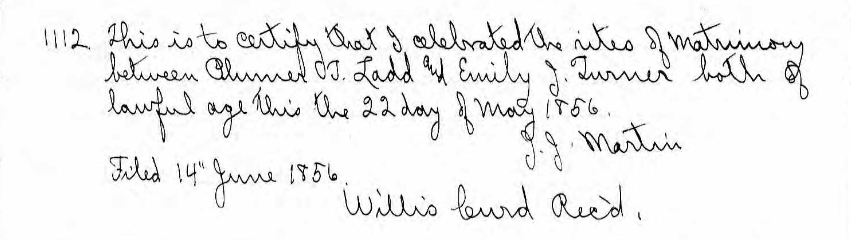 1112 This is to certify that I celebrated the rites of matrimony
between Plumer T. Ladd and Emily J. Turner both of
lawful age this the 22 day of May 1856.
J. J. Martin
Filed 14" June 1856.
Willis Curd Rec'd.